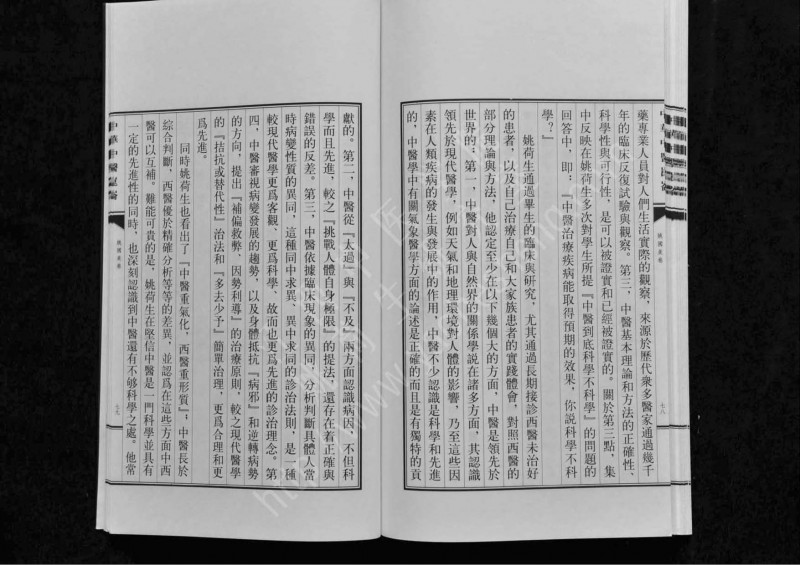 藥專業人員對人們生活實際的觀察，來源於歷代衆多醫家通過幾千
年的臨床反復試驗與觀察。第三，中醫基本理論和方法的正確性、
科學性與可行性，是可以被證實和已經被證實的。關於第三點，集
中反映在姚荷生多次對學生所提『中醫到底科學不科學』的問題的
回答中，即：『中醫治療疾病能取得預期的效果，你説科學不科
學？』
姚荷生通過畢生的臨床與研究，尤其通過長期接診西醫未治好
的患者，以及自己治療自己和大家族患者的實踐體會，對照西醫的
部分理論與方法，他認定至少在以下幾個大的方面，中醫是領先於
世界的：第一，中醫對人與自然界的關係學説在諸多方面，其認識
領先於現代醫學，例如天氣和地理環境對人體的影響，乃至這些因
素在人類疾病的發生與發展中的作用，中醫不少認識是科學和先進
的，中醫學中有關氣象醫學方面的論述是正確的而且是有獨特的貢
七八
獻的。第二，中醫從『太過』與『不及』兩方面認識病因，不但科
學而且先進，較之『挑戰人體自身極限』的提法，還存在着正確與
錯誤的反差。第三，中醫依據臨床現象的異同，分析判斷具體人當
時病變性質的異同，這種同中求異、異中求同的診治法則，是一種
較現代醫學更爲客觀、更爲科學、故而也更爲先進的診治理念。第
四，中醫審視病變發展的趨勢，以及身體抵抗『病邪』和逆轉病勢
的方向，提出『補偏救弊，因勢利導』的治療原則，較之現代醫學
的『拮抗或替代性』治法和『多去少予』簡單治理，更爲合理和更
爲先進。
同時姚荷生也看出了『中醫重氣化，西醫重形質』；中醫長於
綜合判斷，西醫優於精確分析等等的差異，並認爲在這些方面中西
醫可以互補。難能可貴的是，姚荷生在堅信中醫是一門科學並具有
一定的先進性的同時，也深刻認識到中醫還有不够科學之處。他常
七九